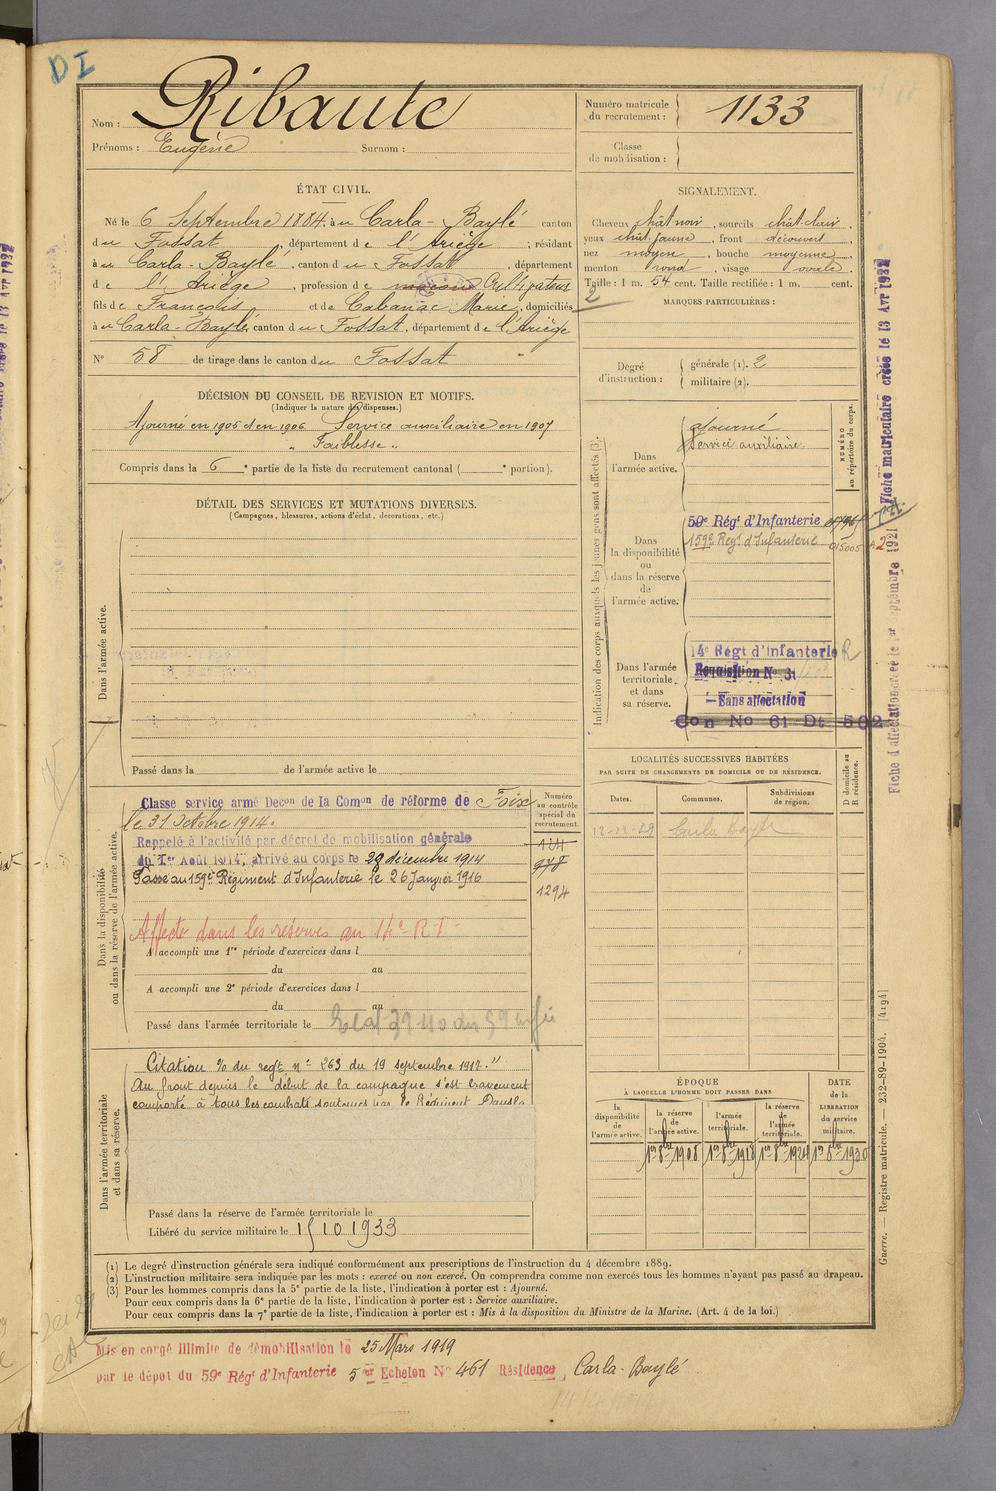 DI
Nom : Ribaute
Prénoms : Eugène Surnom :
Numéro matricule du recrutement : 1133
Classe de mobilisation :
ÉTAT CIVIL.
Né le 6 Septembre 1884, à u Carla-Baylé canton
d u Fossat, département d e l'Ariège ; résidant
à u Carla-Baylé, canton d u Fossat, département
d e l'Ariège, profession de maçon Cultivateur
fils de François et de Cabanac Marie, domiciliés
à u Carla-Baylé, canton d u Fossat, département d e l'Ariège
N° 58 de tirage dans le canton d u Fossat
SIGNALEMENT.
Cheveux chât noir, sourcils chât-clair,
yeux chât jaune, front découvert
nez moyen bouche moyenne
menton rond, visage ovale.
Taille : 1 m. 54 cent. Taille rectifiée : 1 m. cent.
2
MARQUES PARTICULIÈRES :
Degré d'instruction : générale (1). 2
militaire (2).
DÉCISION DU CONSEIL DE REVISION ET MOTIFS.
(Indiquer la nature des dispenses.)
Ajourné en 1905 et en 1906 Service auxiliaire en 1907
" Faiblesse "
Compris dans la 6e partie de la liste du recrutement cantonal ( e portion).
DÉTAIL DES SERVICES ET MUTATIONS DIVERSES.
(Campagnes, blessures, actions d'éclat, décorations, etc.)
Dans l'armée active.
Passé dans la de l'armée active le
Indication des corps auxquels les jeunes gens sont affectés (3).
NUMÉRO au répertoire du corps.
Dans l'armée active.
ajourné
Service auxiliaire
Dans la disponibilité ou dans la réserve de l'armée active.
59e Régt d'Infanterie
159e Regt d'Infanterie 015005
Dans l'armée territoriale et dans sa réserve.
14e Régt d'infanterie R
Réquisition No 31
Sans affectation
Con No 61 Dt 502
LOCALITÉS SUCCESSIVES HABITÉES
PAR SUITE DE CHANGEMENTS DE DOMICILE OU DE RÉSIDENCE.
Dates. Communes. Subdivisions de région. D domicile ou R résidence.
12-12-29 Carla Bayle
Dans la disponibilité ou dans la réserve de l'armée active.
Numéro au contrôle spécial du recrutement.
Classe service armé Decon de la Comon de réforme de Foix
le 31 Octobre 1914.
Rappelé à l'activité par décret de mobilisation générale
du 1er Août 1914, arrivé au corps le 29 décembre 1914
Passé au 159e Régiment d'Infanterie le 26 Janvier 1916
978
1294
Affecté dans les réserves au 14e R I
A accompli une 1re période d'exercices dans l
du au
A accompli une 2e période d'exercices dans l
du au
Passé dans l'armée territoriale le
Dans l'armée territoriale et dans sa réserve.
Citation % du regt n° 263 du 19 septembre 1917. "
Au front depuis le début de la campagne s'est bravement
comporté à tous les combats soutenus par le Régiment Dans la
Passé dans la réserve de l'armée territoriale le
Libéré du service militaire le 15 10 1933
ÉPOQUE
À LAQUELLE L'HOMME DOIT PASSER DANS
la disponibilité de l'armée active.
la réserve de l'armée active.
l'armée territoriale.
la réserve de l'armée territoriale.
DATE de la LIBÉRATION du service militaire.
1er 8bre 1908 1er 8bre 1918 1er 8bre 1924 1er 8bre 1930
(1) Le degré d'instruction générale sera indiqué conformément aux prescriptions de l'instruction du 4 décembre 1889.
(2) L'instruction militaire sera indiquée par les mots : exercé ou non exercé. On comprendra comme non exercés tous les hommes n'ayant pas passé au drapeau.
(3) Pour les hommes compris dans la 5e partie de la liste, l'indication à porter est : Ajourné.
Pour ceux compris dans la 6e partie de la liste, l'indication à porter est : Service auxiliaire.
Pour ceux compris dans la 7e partie de la liste, l'indication à porter est : Mis à la disposition du Ministre de la Marine. (Art. 4 de la loi.)
Mis en congé illimité de démobilisation le 25 Mars 1919
par le dépot du 59e Régt d'Infanterie 5er Echelon No 461 Résidence Carla-Baylé
Fiche matriculaire créée le 13 Avr 1932
Fiche d'affectation créée le 1er septembre 1921
Guerre. — Registre matricule. — 232-89-1904. [4194]